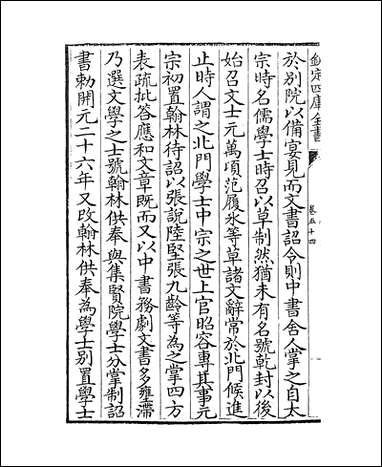 欽定四庫全書
卷五十四
於別院以備宴見而文書詔令則中書舍人掌之自太
宗時名儒學士時召以草制然猶未有名號乾封以後
始召文士元萬頃范履氷等草諸文辭常於北門候進
止時人謂之北門學士中宗之世上官昭容專其事元
宗初置翰林待詔以張說陸堅張九齡等為之掌四方
表疏批答應和文章既而又以中書務劇文書多壅滯
乃選文學之士號翰林供奉與集賢院學士分掌制詔
書勅開元二十六年又改翰林供奉為學士別置學士